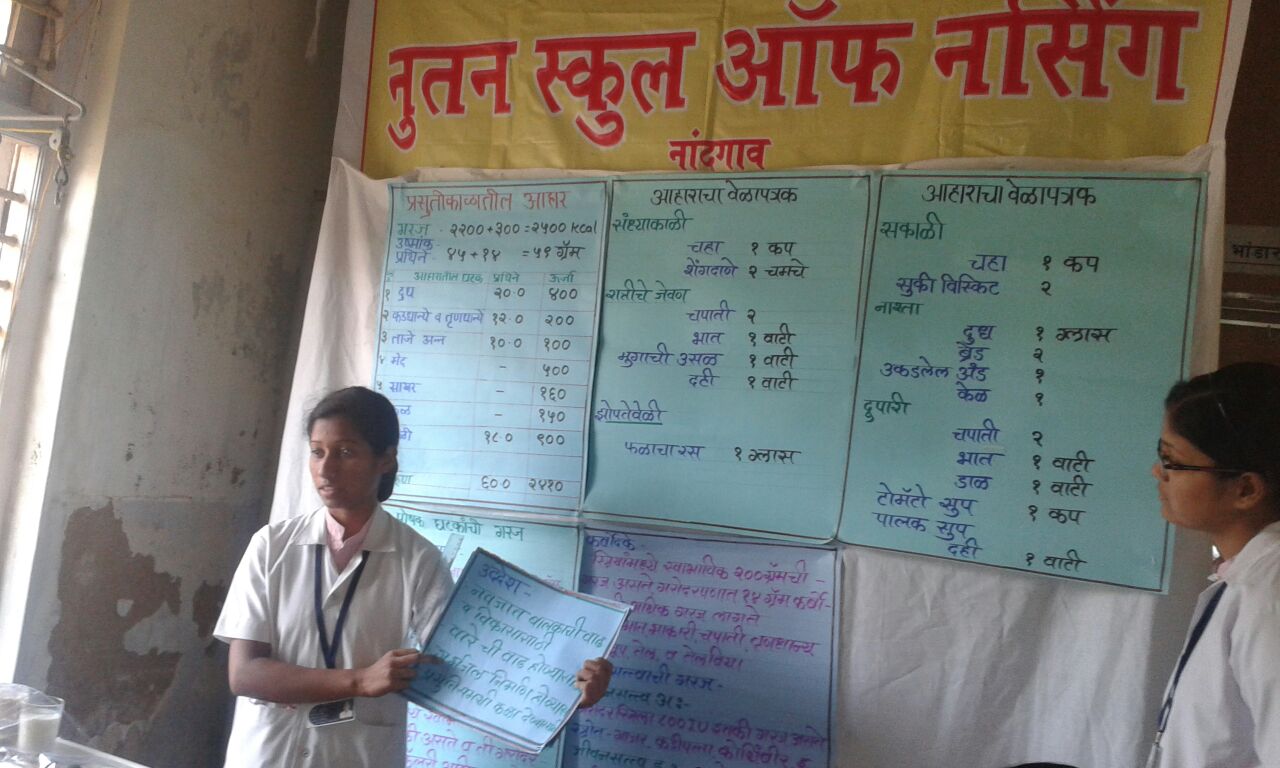 नुतन स्कुल ऑफ नर्सिंग
नांदगाव
प्रसुतीकाव्यतील आहार
गरज - २२०० + ३०० = २५०० kcal
उष्मांक -
प्रथिने - ४५ + १४ = ५९ गॅम
आहारातील घटक प्रथिने ऊर्जा
१ दुध २०.० ४००
२ कडधान्ये व तृणधान्ये १२.० २००
३ ताजे अन्न १०.० १००
४ मेद - ५००
५ साखर - १६०
- १५०
१८.० ९००
६०.० २४१०
आहाराचा वेळापत्रक
संध्याकाळी
चहा १ कप
शेंगदाणे २ चमचे
रात्रीचे जेवण
चपाती २
भात १ वाटी
मुगाची उसळ १ वाटी
दही १ वाटी
झोपतेवेळी
फळाचा रस १ ग्लास
आहाराचा वेळापत्रक
सकाळी
चहा १ कप
सुकी बिस्किट २
नाश्ता
दुध १ ग्लास
ब्रेड २
उकडलेल अंड १
केळ १
दुपारी
चपाती २
भात १ वाटी
डाळ १ वाटी
टोमॅटो सुप १ कप
पालक सुप
दही १ वाटी
पोषक घटकांची गरज
स्त्रियांमध्ये स्वाभाविक २००ग्रॅमची -
गरज असते गरोदरपणात १४ गॅम कर्बो -
अधिक गरज लागते
भाकरी, चपाती, तृणधान्य
तुप, तेल, व तेलबिया
गरज -
अ :-
८००IU इतकी गरज असते
गाजर, कढीपत्ता कोथिंबीर इ
उद्देश -
नवजात बालकाची वाढ
व विकासासाठी
वारे ची वाढ होण्यासाठी
निर्माण होण्यास
भांडार